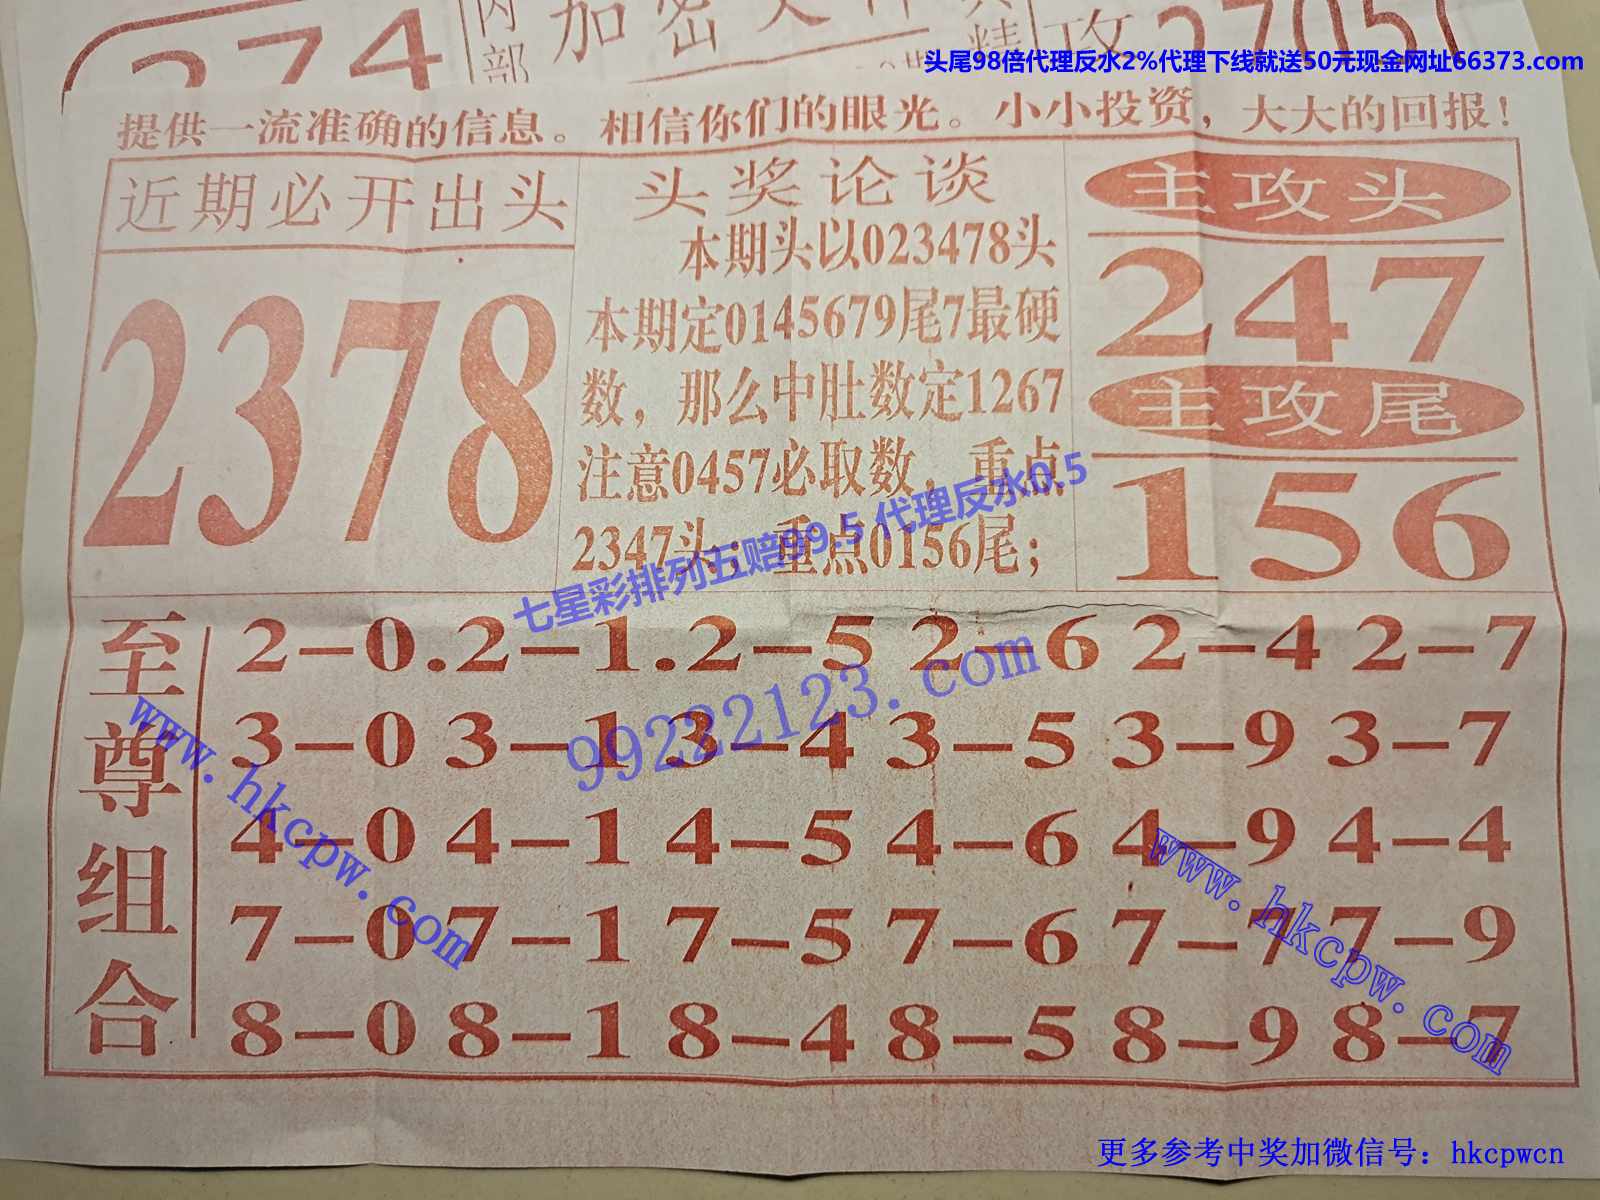 274
内部
加密文件
攻
2705
头尾98倍代理反水2%代理下线就送50元现金网址66373.com
提供一流准确的信息。相信你们的眼光。小小投资，大大的回报！
近期必开出头
2378
头奖论谈
本期头以023478头
本期定0145679尾7最硬
数，那么中肚数定1267
注意0457必取数，重点
2347头；重点0156尾；
主攻头
247
主攻尾
156
七星彩排列五赔99.5 代理反水0.5
99222123.com
至尊组合
2-0.2-1.2-5 2-6 2-4 2-7
3-0 3-1 3-4 3-5 3-9 3-7
4-0 4-1 4-5 4-6 4-9 4-4
7-0 7-1 7-5 7-6 7-7 7-9
8-0 8-1 8-4 8-5 8-9 8-7
www.hkcpw.com
www.hkcpw.com
更多参考中奖加微信号：hkcpwcn